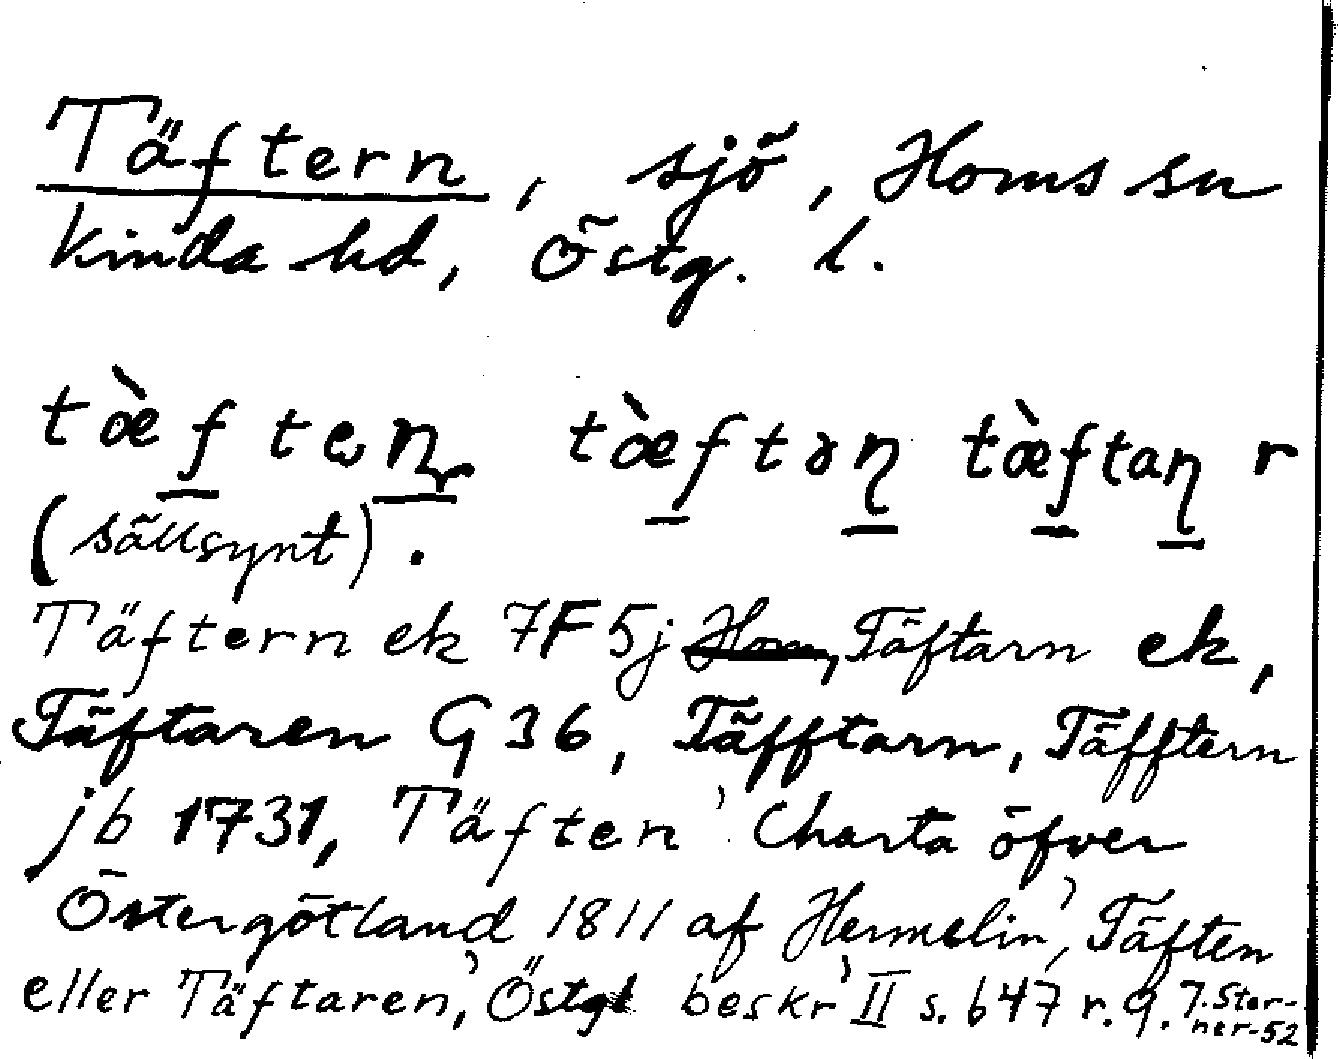 Täftern, sjö, Horns sn
Kinda hd, Östg. l.
tæ̀ften tæ̀ftəɳ tæ̀ftaɳ r
(sällsynt).
Täftern ek 7F5j Täftarn ek,
Täftaren G36, Täfftarn, Täfftern
jb 1731, Täften ' Charta öfver
Östergötland 1811 af Hermelin', Täften
eller Täftaren,' Östgl beskr' II s. 647 r. 9. T. Ster-
ner-52